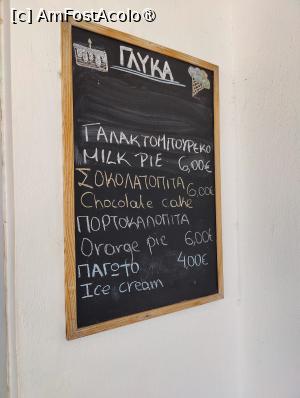 [c] AmFostAcolo®
ΓΛΥΚΑ
ΓΑΛΑΚΤΟΜΠΟΥΡΕΚΟ
MILK PIE 6,00€
ΣΟΚΟΛΑΤΟΠΙΤΑ
Chocolate cake 6,00€
ΠΟΡΤΟΚΑΛΟΠΙΤΑ
Orange pie 6,00€
ΠΑΓΩΤΟ 4,00€
Ice cream